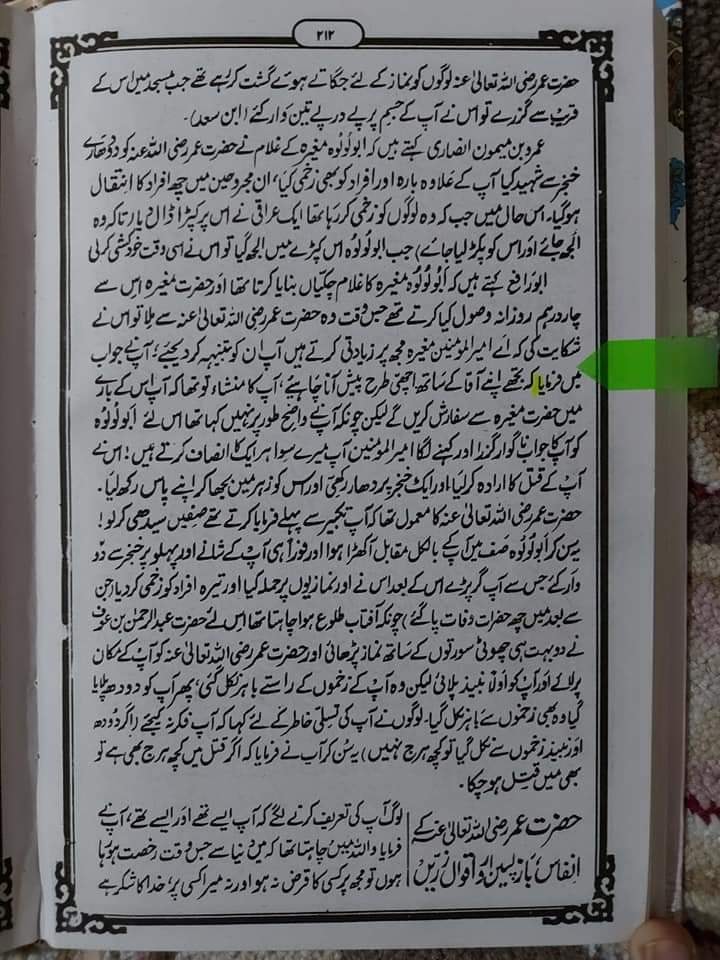 ۲۱۲
حضرت عمر رضی اللہ تعالیٰ عنہ لوگوں کو نماز کے لئے جگاتے ہوئے گشت کر رہے تھے جب مسجد میں اس کے
قریب سے گزرے تو اس نے آپ کے جسم پر پے در پے تین وار کئے (ابن سعد)۔
عمرو بن میمون انصاری کہتے ہیں کہ ابولولوہ مغیرہ کے غلام نے حضرت عمر رضی اللہ عنہ کو دودھارے
خنجر سے شہید کیا آپ کے علاوہ بارہ اور افراد کو بھی زخمی کیا، ان مجروحین میں چھ افراد کا انتقال
ہوگیا۔ اس حال میں جب کہ وہ لوگوں کو زخمی کر رہا تھا ایک عراقی نے اس پر کپڑا ڈال دیا (تاکہ وہ
الجھ جائے اور اس کو پکڑ لیا جائے) جب ابولولوہ اس کپڑے میں الجھ گیا تو اس نے اسی وقت خودکشی کرلی
ابو رافع کہتے ہیں کہ ابو لولوہ مغیرہ کا غلام چکیاں بنایا کرتا تھا اور حضرت مغیرہ اس سے
چار درہم روزانہ وصول کیا کرتے تھے جس وقت وہ حضرت عمر رضی اللہ تعالیٰ عنہ سے ملا تو اس نے
شکایت کی کہ اے امیر المومنین مغیرہ مجھ پر زیادتی کرتے ہیں آپ ان کو تنبیہہ کر دیجئے، آپ نے جواب
میں فرمایا کہ تجھے اپنے آقا کے ساتھ اچھی طرح پیش آنا چاہیئے، آپ کا منشاء تو تھا کہ آپ اس کے بارے
میں حضرت مغیرہ سے سفارش کریں گے لیکن چونکہ آپ نے واضح طور پر نہیں کہا تھا اس لئے ابولولوہ
کو آپ کا جواب ناگوار گزرا اور کہنے لگا امیر المومنین آپ میرے سوا ہر ایک کا انصاف کرتے ہیں! اس نے
آپ کے قتل کا ارادہ کرلیا اور ایک خنجر پر دھار رکھی اور اس کو زہر میں بجھا کر اپنے پاس رکھ لیا۔
حضرت عمر رضی اللہ تعالیٰ عنہ کا معمول تھا کہ آپ تکبیر سے پہلے فرمایا کرتے تھے صفیں سیدھی کرلو!
یہ سن کر ابو لولوہ صف میں آپ کے بالکل مقابل آکھڑا ہوا اور فوراً ہی آپ کے شانے اور پہلو پر خنجر سے دو
وار کئے جس سے آپ گر پڑے اس کے بعد اس نے اور نمازیوں پر حملہ کیا اور تیرہ افراد کو زخمی کر دیا (جن
سے بعد میں چھ حضرات وفات پا گئے) چونکہ آفتاب طلوع ہوا چاہتا تھا اس لئے حضرت عبدالرحمٰن بن عوف
نے دو بہت ہی چھوٹی سورتوں کے ساتھ نماز پڑھائی اور حضرت عمر رضی اللہ تعالیٰ عنہ کو آپ کے مکان
پر لائے اور آپ کو اولاً نبیذ پلائی لیکن وہ آپ کے زخموں کے راستے باہر نکل گئی، پھر آپ کو دودھ پلایا
گیا وہ بھی زخموں سے باہر نکل گیا۔ لوگوں نے آپ کی تسلی خاطر کے لئے کہا کہ آپ فکر نہ کیجئے (اگر دودھ
اور نبیذ زخموں سے نکل گیا تو کچھ ہرج نہیں) یہ سن کر آپ نے فرمایا کہ اگر قتل میں کچھ ہرج بھی ہے تو
بھی میں قتل ہو چکا۔
حضرت عمر رضی اللہ تعالیٰ عنہ کے
انفاس، بازپسیں اور اقوال زریں
لوگ آپ کی تعریف کرنے لگے کہ آپ ایسے تھے اور ایسے تھے، آپ نے
فرمایا واللہ میں چاہتا تھا کہ میں دنیا سے جس وقت رخصت ہو رہا
ہوں تو مجھ پر کسی کا قرض نہ ہو اور نہ میرا کسی پر، خدا کا شکر ہے